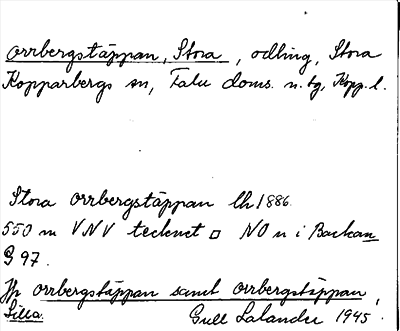 Orrbergstäppan, Stora, odling, Stora
Kopparbergs sn, Falu doms. n. tg, Kopp. l.
Stora Orrbergstäppan lh 1886.
550 m VNV tecknet □ NO n i Backan
G 97.
Jfr Orrbergstäppan samt Orrbergstäppan,
Lilla. Gull Lalander 1945.